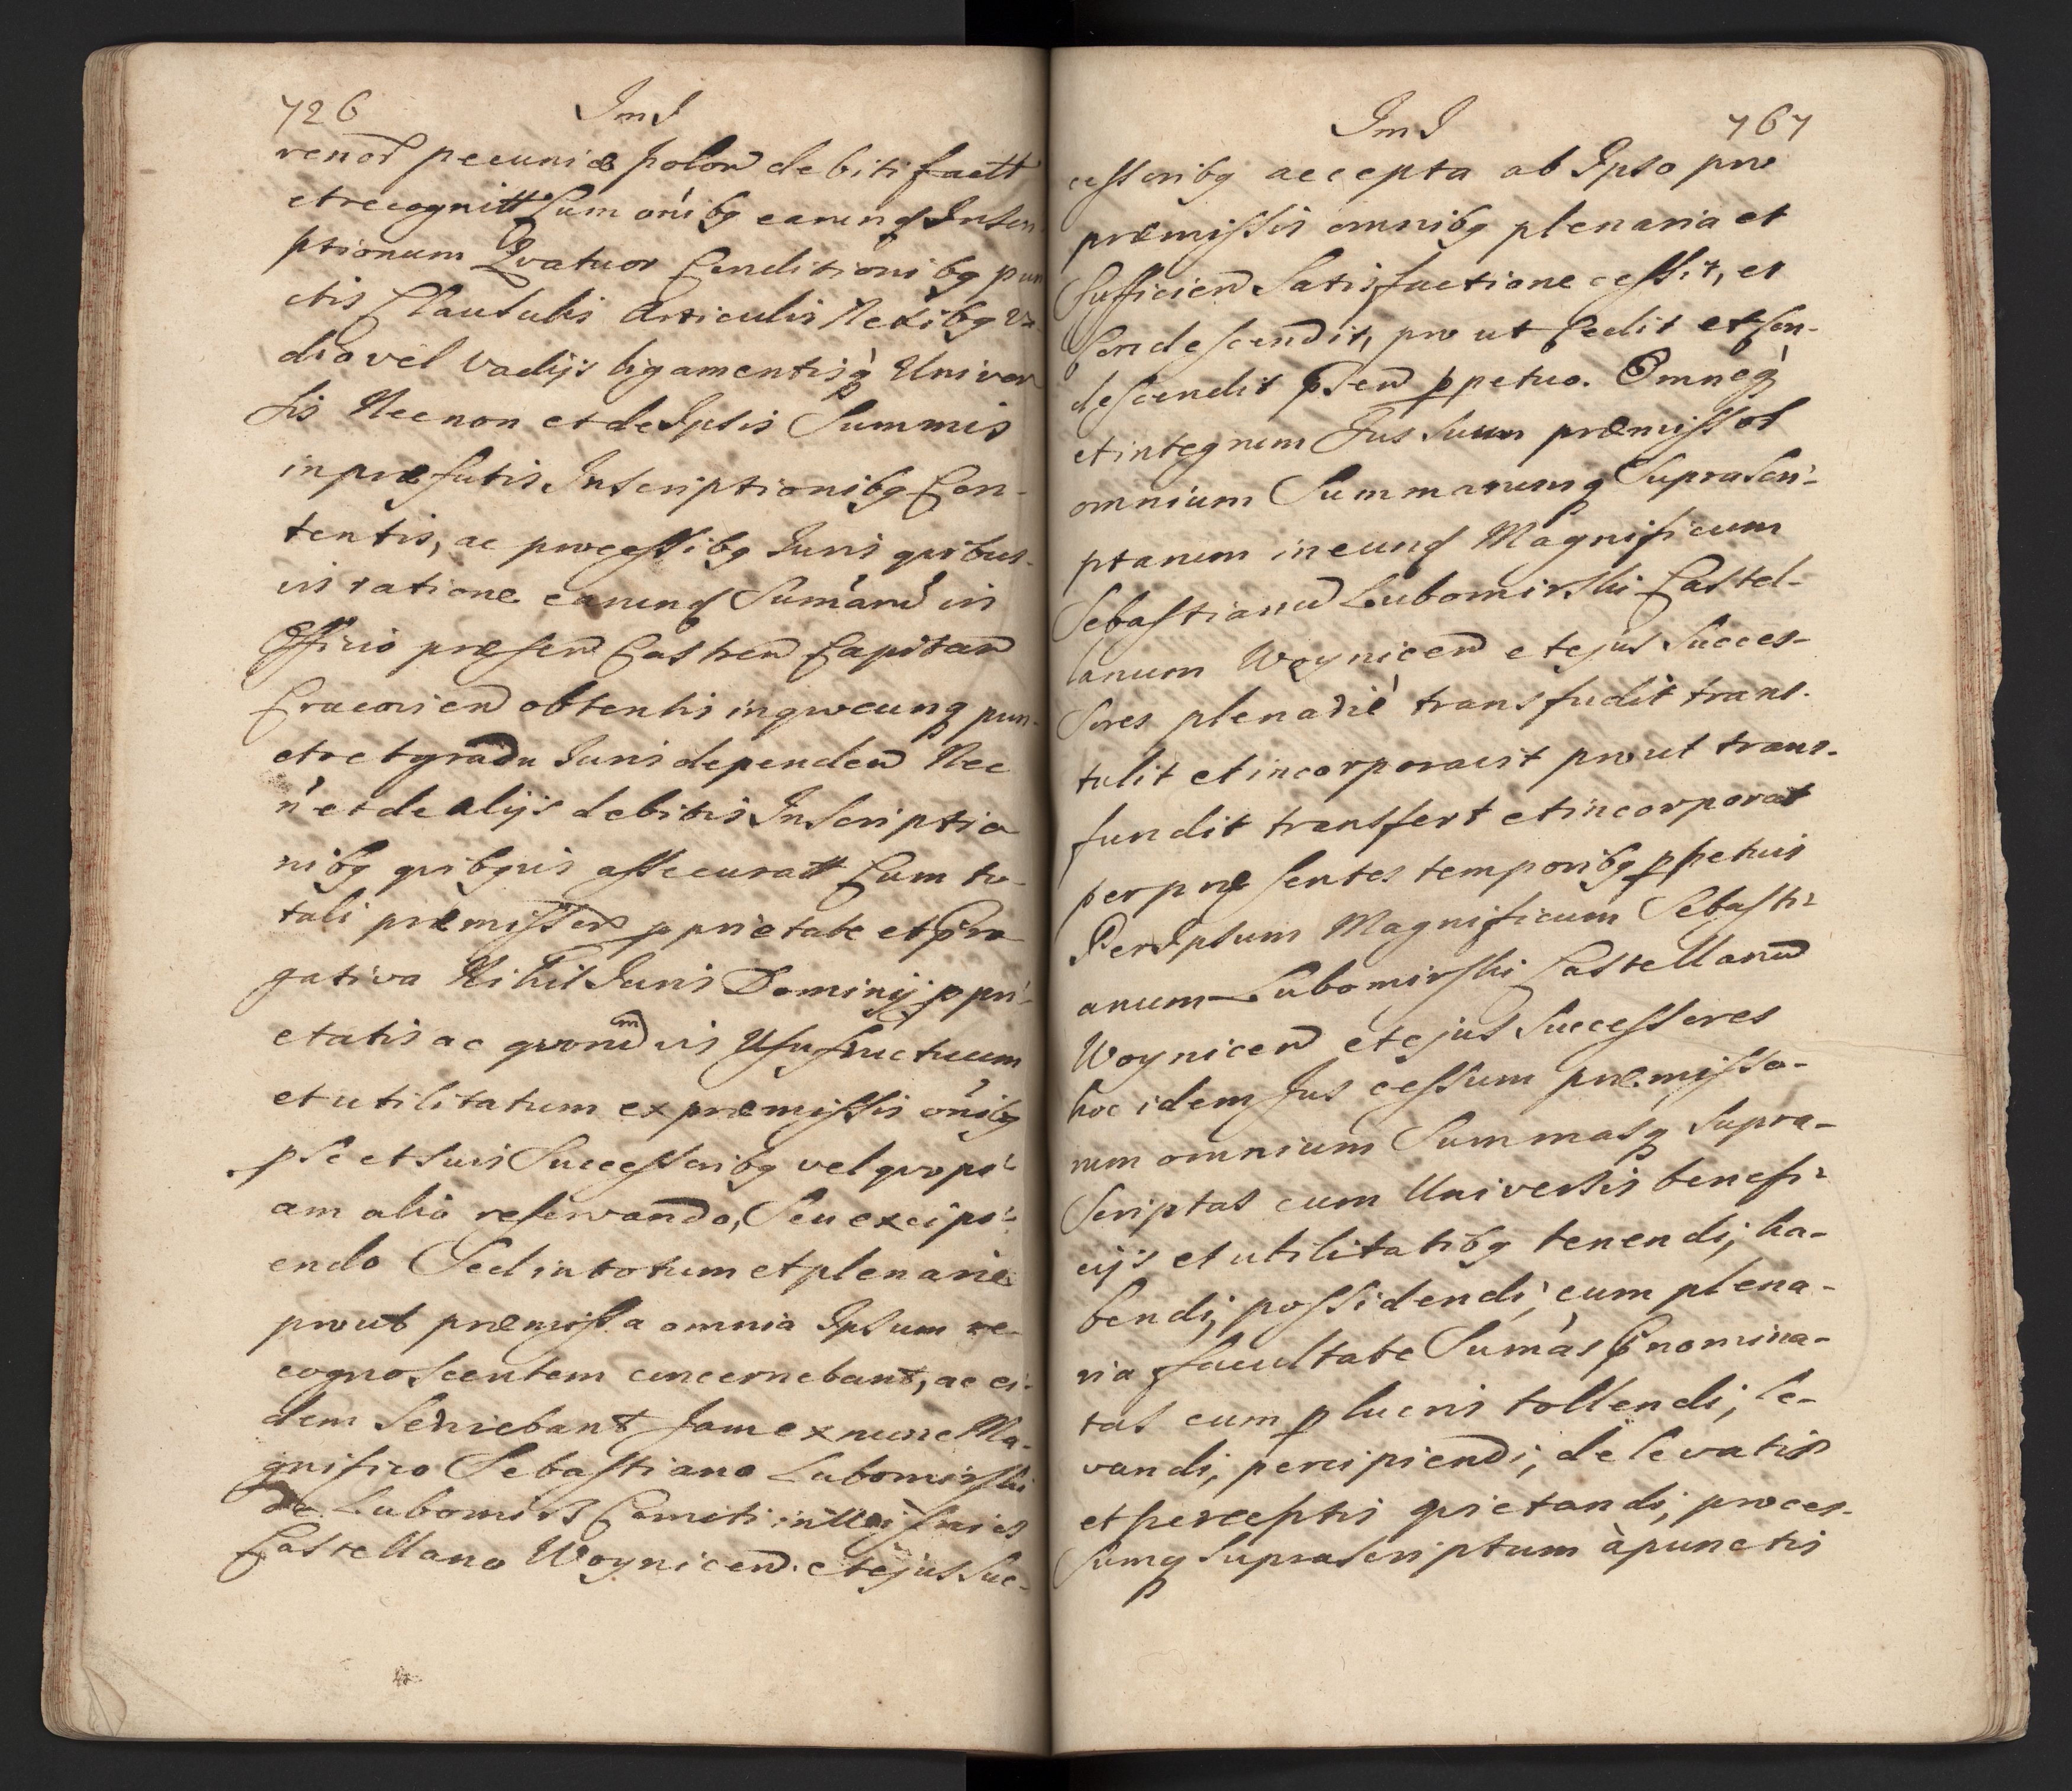 726 JmJ
renor̄ pecuniæ polon̄ debiti factt
et recognitt Cum oñibq earunđ Inscri
ptionum Qvatuor Conditionibq pun
ctis Clausulis Articulis Nexibq va
dio vel Vadijs ligamentisq̀ Univer
sis Necnon et de Ipsis Summis
in præfatis Inscriptionibq Con-
tentis, ac processibq Juris quibus-
vis ratione earunđ Sum̄arū in
Officio præsen̄ Castren̄ Capitan̄
Cracovien̄ obtentis in qvocunq pun-
cto et gradu Juris dependen̄ Nec
ń et de alijs debitis Inscriptio
nibq quibqvis assecuratt Cum to-
tali præmissor̄ pprietate et Pro
gativa Nihil Juris Dominij ppri-
etatis ac qvorumvis Usufructuum
et utilitatum ex præmissis oñibq
p se et suis Successoribq vel qvopi-
am alio reservando, Seu excipi-
endo Sed in totum et plenarie
prout præmissa omnia Ipsum re-
cognoscentem concernebant, ac ei-
dem Serviebant Jam ex nunc Ma-
gnifico Sebastiano Lubomirski
de Lubomirz Comiti in Wisnicz
Castellano Woynicen̄. et ejus Suc-
JmJ 767
cessoribq accepta ab Ipso pro
præmissis omnibq plenaria et
Sufficien̄ Satisfactione cessit, et
Condescendit, pro ut Cedit et Con-
descendit p̄sen̄ ppetuo. Omneq̀
et integrum Jus Suum præmissor̄
omnium Summarumq Suprascri-
ptarum in eunđ Magnificum
Sebastianū Lubomirski Castel-
lanum Woynicen̄ et ejus Succes-
sores plenariè transfudit trans-
tulit et incorporavit prout trans-
fundit transfert et incorporat
per præsentes temporibq ppetuis
Per Ipsum Magnificum Sebasti-
anum Lubomirski Castellanū
Woynicen̄ et ejus Successores
hoc idem Jus cessum præmisso-
rum omnium Summasq Supra-
Scriptas cum Universis benefi-
cijs et utilitatibq tenendi, ha-
bendi, possidendi, cum plena-
ria facultate Sum̄as p̄nomina-
tas cum p lucris tollendi, le-
vandi, percipiendi, de levatis
et perceptis quietandi, proces-
Sumq Suprascriptum à punctis